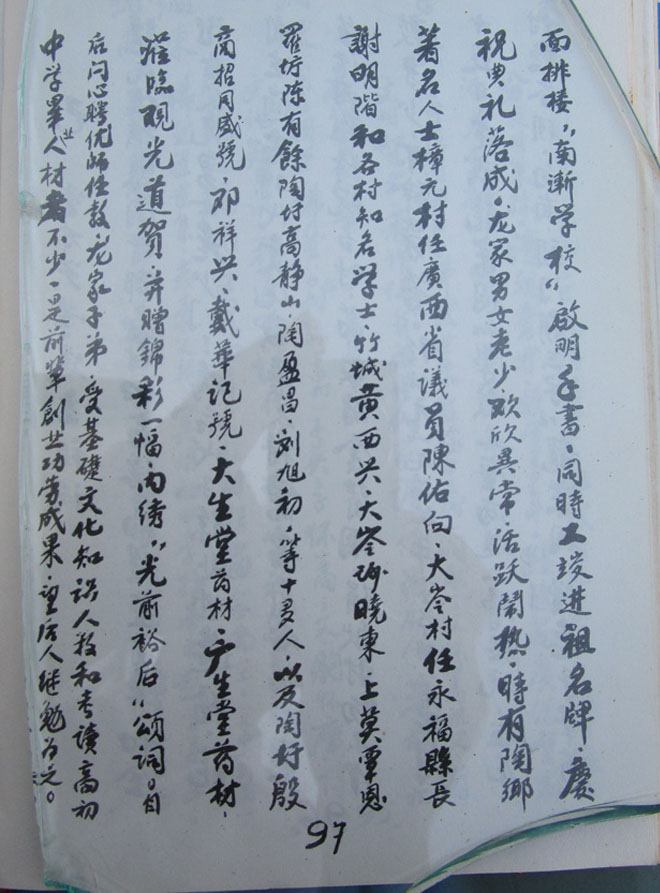 面排楼，“南漸学校”啟明手書，同時工竣进祖名牌，慶
祝典礼落成。龙家男女老少，欢欣異常，活跃鬧热，時有陶鄉
著名人士樟元村任廣西省議員陳佑向、大岺村任永福縣長
謝明階和各村知名学士，竹城黄西兴、大岺 曉東、上莫覃恩
羅圩陈有餘陶圩高静山、陶盈昌、刘旭初，等十多人，以及陶圩殷
商招同盛號、邓祥兴、戴華記號、大生堂药材、广生堂药材，
涖臨观光道賀，并赠錦彩一幅，内绣，“光前裕后”頌词。自
后问心聘优師任教，龙家子弟，受基礎文化知识人数和考读高初
中学畢业人材者不少，是前輩創业功劳成果，望后人继勉为之。
97